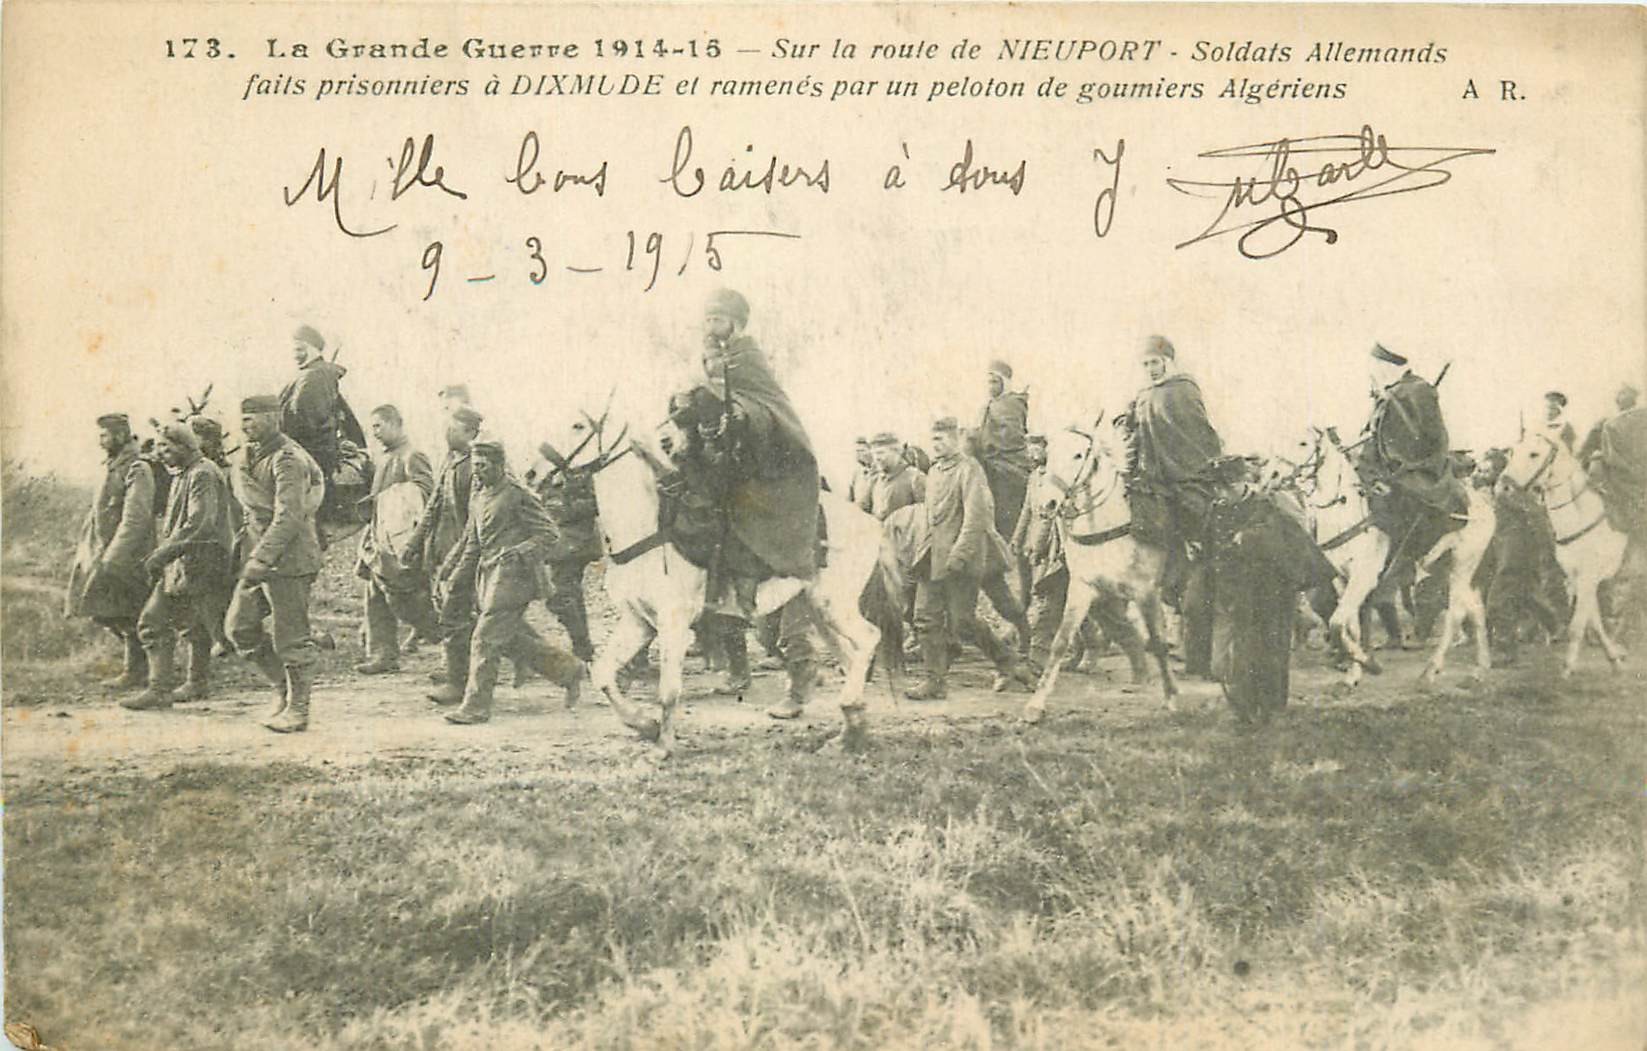 173. La Grande Guerre 1914-15 — Sur la route de NIEUPORT - Soldats Allemands
faits prisonniers à DIXMUDE et ramenés par un peloton de goumiers Algériens A R.
Mille bons baisers à tous J.
9-3-1915